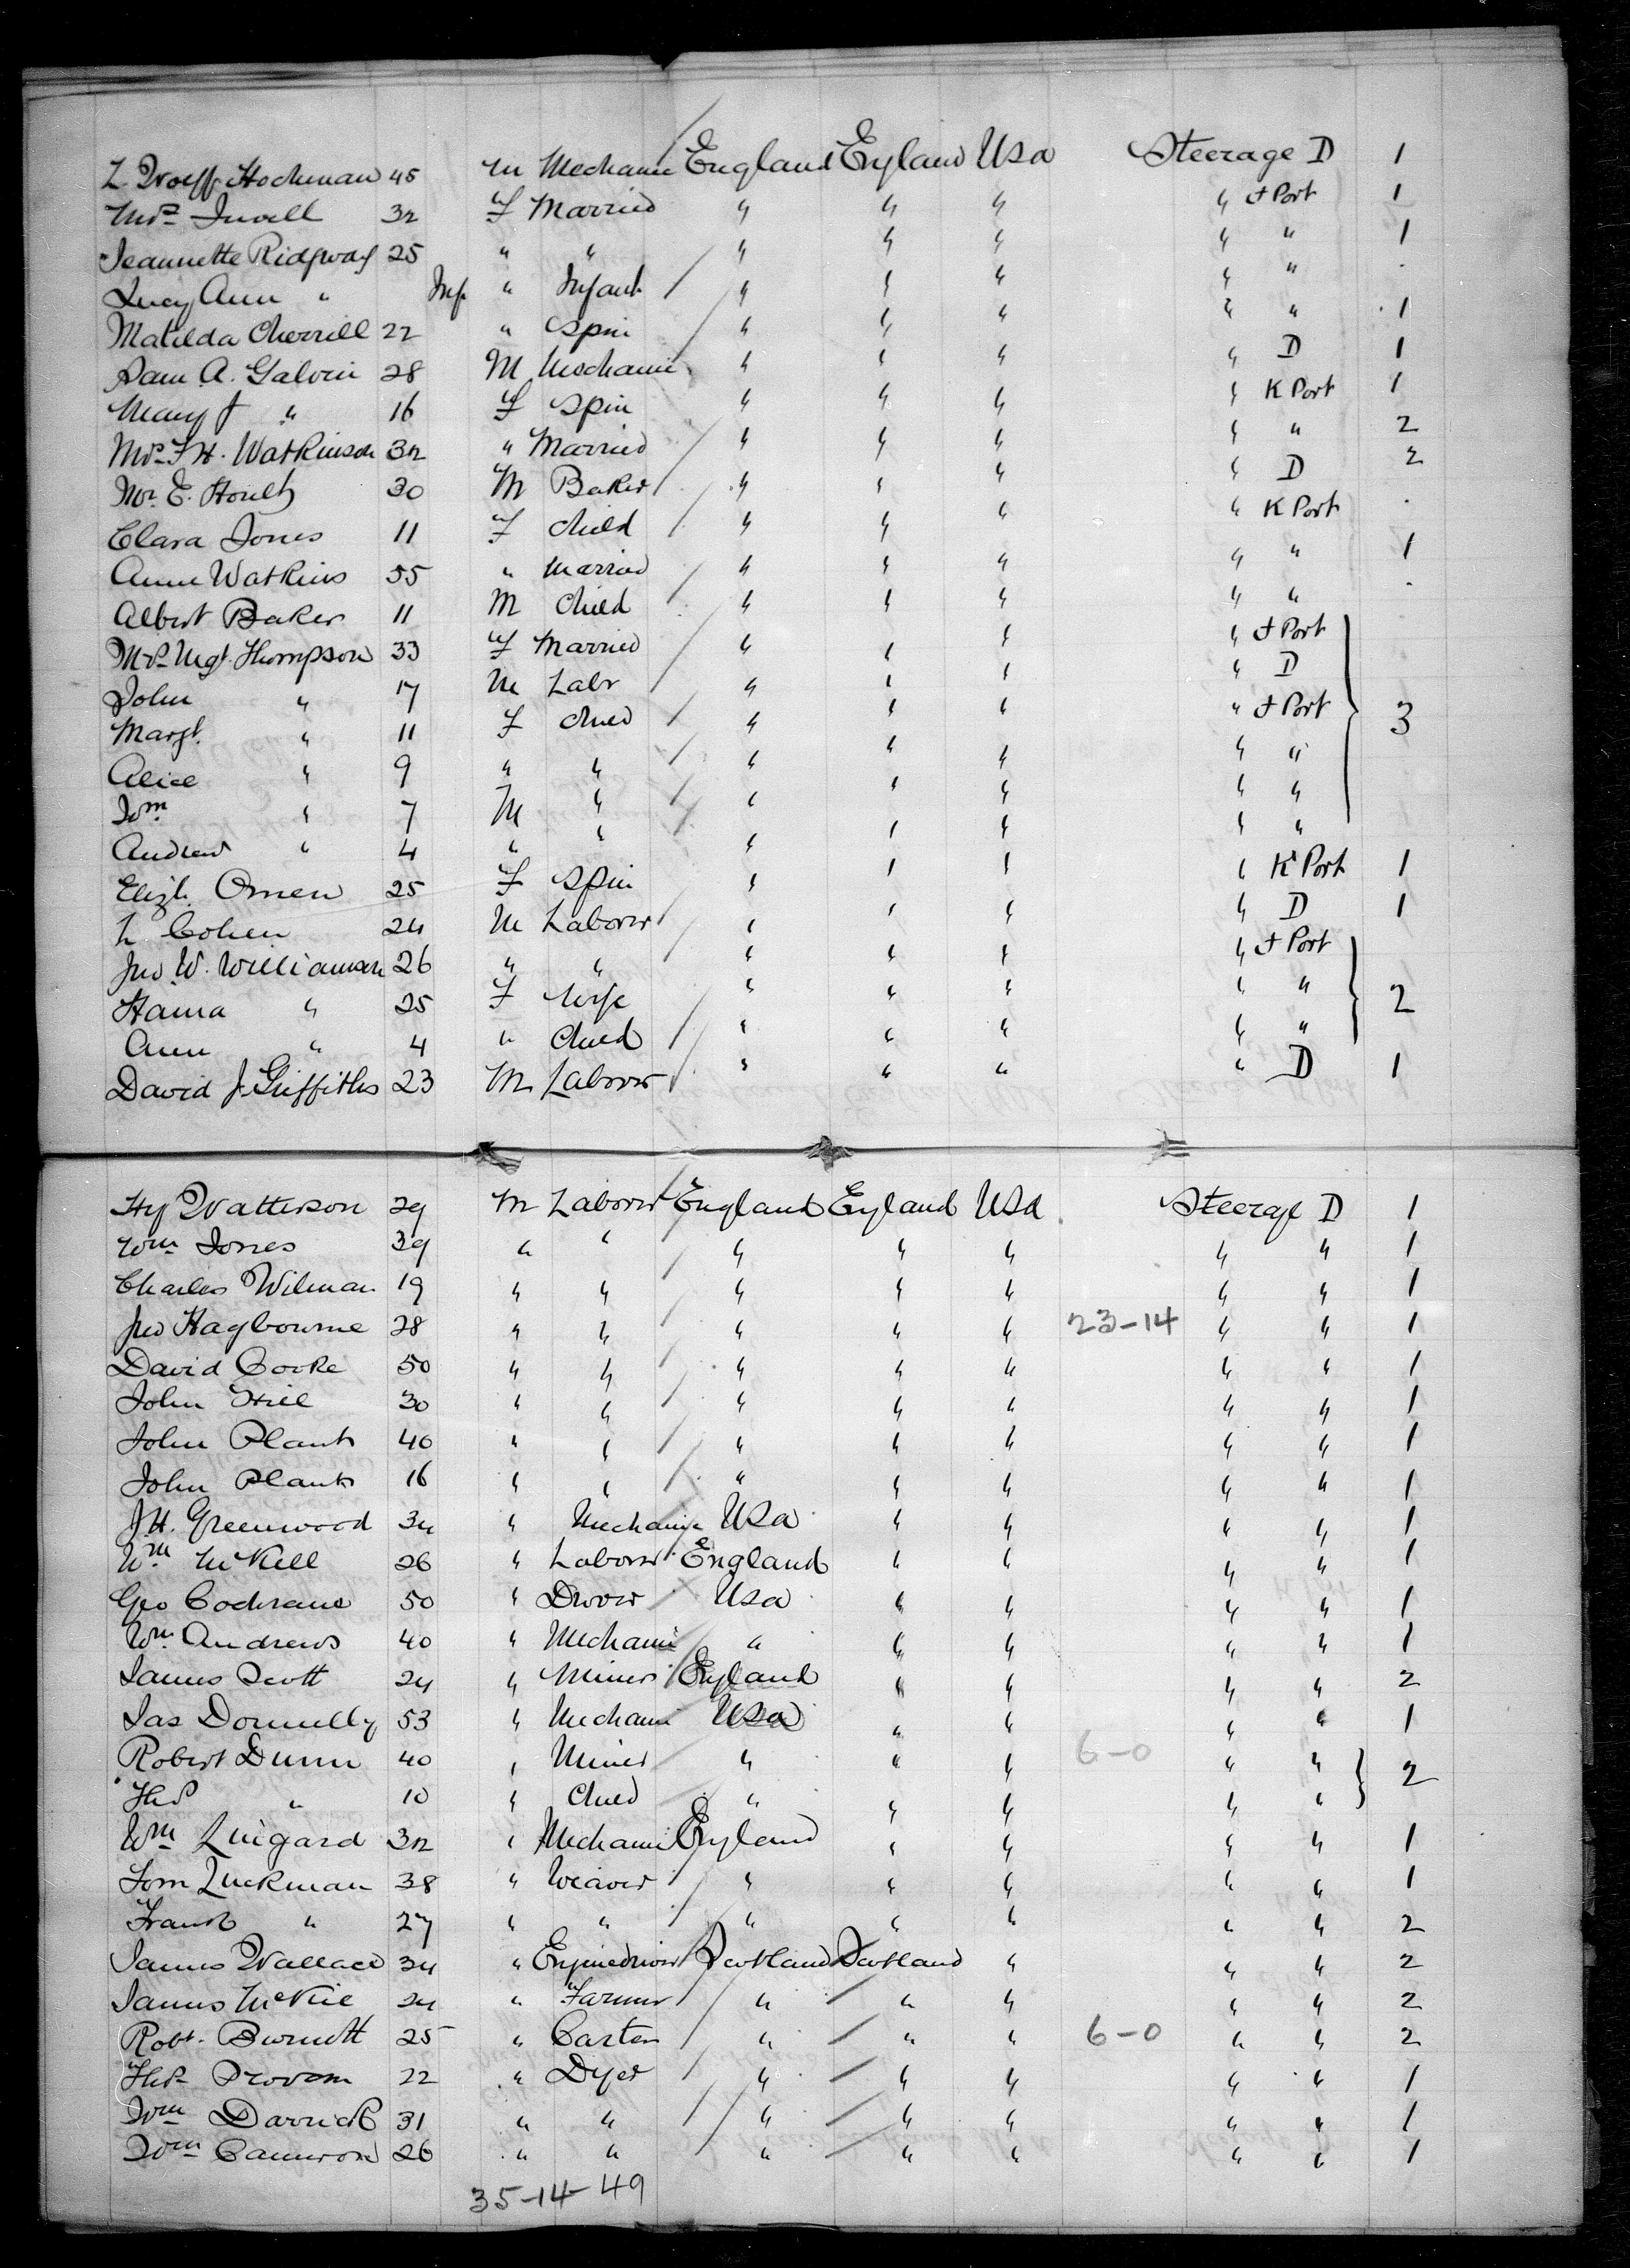 L. Wolff Hochman 45 M Mechanic England England Usa Steerage D 1
Mrs Juvell 32 F Married " " " " F Port 1
Jeannette Ridgway 25 " " " " " " " 1
Lucy Ann " Inf " Infant " " " " " .
Matilda Cherrill 22 " Spin " " " " " 1
Sam A. Galvin 28 M Mechanic " " " " D 1
Mary J " 16 F Spin " " " " K Port 1
Mrs F H. Watkinson 32 " Married " " " " " 2
Mr E. Hoult 30 M Baker " " " " D 2
Clara Jones 11 F Child " " " " K Port .
Anne Watkins 55 " Married " " " " " 1
Albert Baker 11 M Child " " " " " .
Mrs Mgt. Thompson 33 F Married " " " " F Port
John " 17 M Labr " " " " D
Margt. " 11 F Child " " " " F Port 3
Alice " 9 " " " " " " "
Wm " 7 M " " " " " "
Andrew " 4 " " " " " " "
Elizh. Omen 25 F Spin " " " " K Port 1
L Cohen 24 M Laborer " " " " D 1
Jno W. Williamson 26 " " " " " " F Port
Hanna " 25 F Wife " " " " " 2
Ann " 4 " Child " " " " "
David J. Griffiths 23 M Laborer " " " " D 1
Hy Watterson 29 M Laborer England England Usa Steerage D 1
Wm Jones 39 " " " " " " " 1
Charles Wilman 19 " " " " " " " 1
Jno Hagbourne 28 " " " " " 23-14 " " 1
David Cooke 50 " " " " " " " 1
John Hill 30 " " " " " " " 1
John Plant 40 " " " " " " " 1
John Plant 16 " " " " " " " 1
J.H. Greenwood 34 " Mechanic Usa " " " " 1
Wm McKill 26 " Laborer England " " " " 1
Geo Cochrane 50 " Drover Usa " " " " 1
Wm Andrews 40 " Mechanic " " " " " 1
James Scott 24 " Miner England " " " " 2
Jas Donnelly 53 " Mechanic Usa " " " " 1
Robert Dunn 40 " Miner " " " 6-0 " " 2
Thos " 10 " Child " " " " "
Wm Lingard 32 " Mechanic England " " " " 1
Tom Luckman 38 " Weaver " " " " " 1
Frank " 27 " " " " " " " 2
James Wallace 34 " Enginedriver Scotland Scotland " " " 2
James McKie 24 " Farmer " " " " " 2
Robt. Burnett 25 " Carter " " " 6-0 " " 2
Thos Provom 22 " Dyer " " " " " 1
Wm Darrick 31 " " " " " " " 1
Wm Cameron 26 " " " " " " " 1
35-14-49